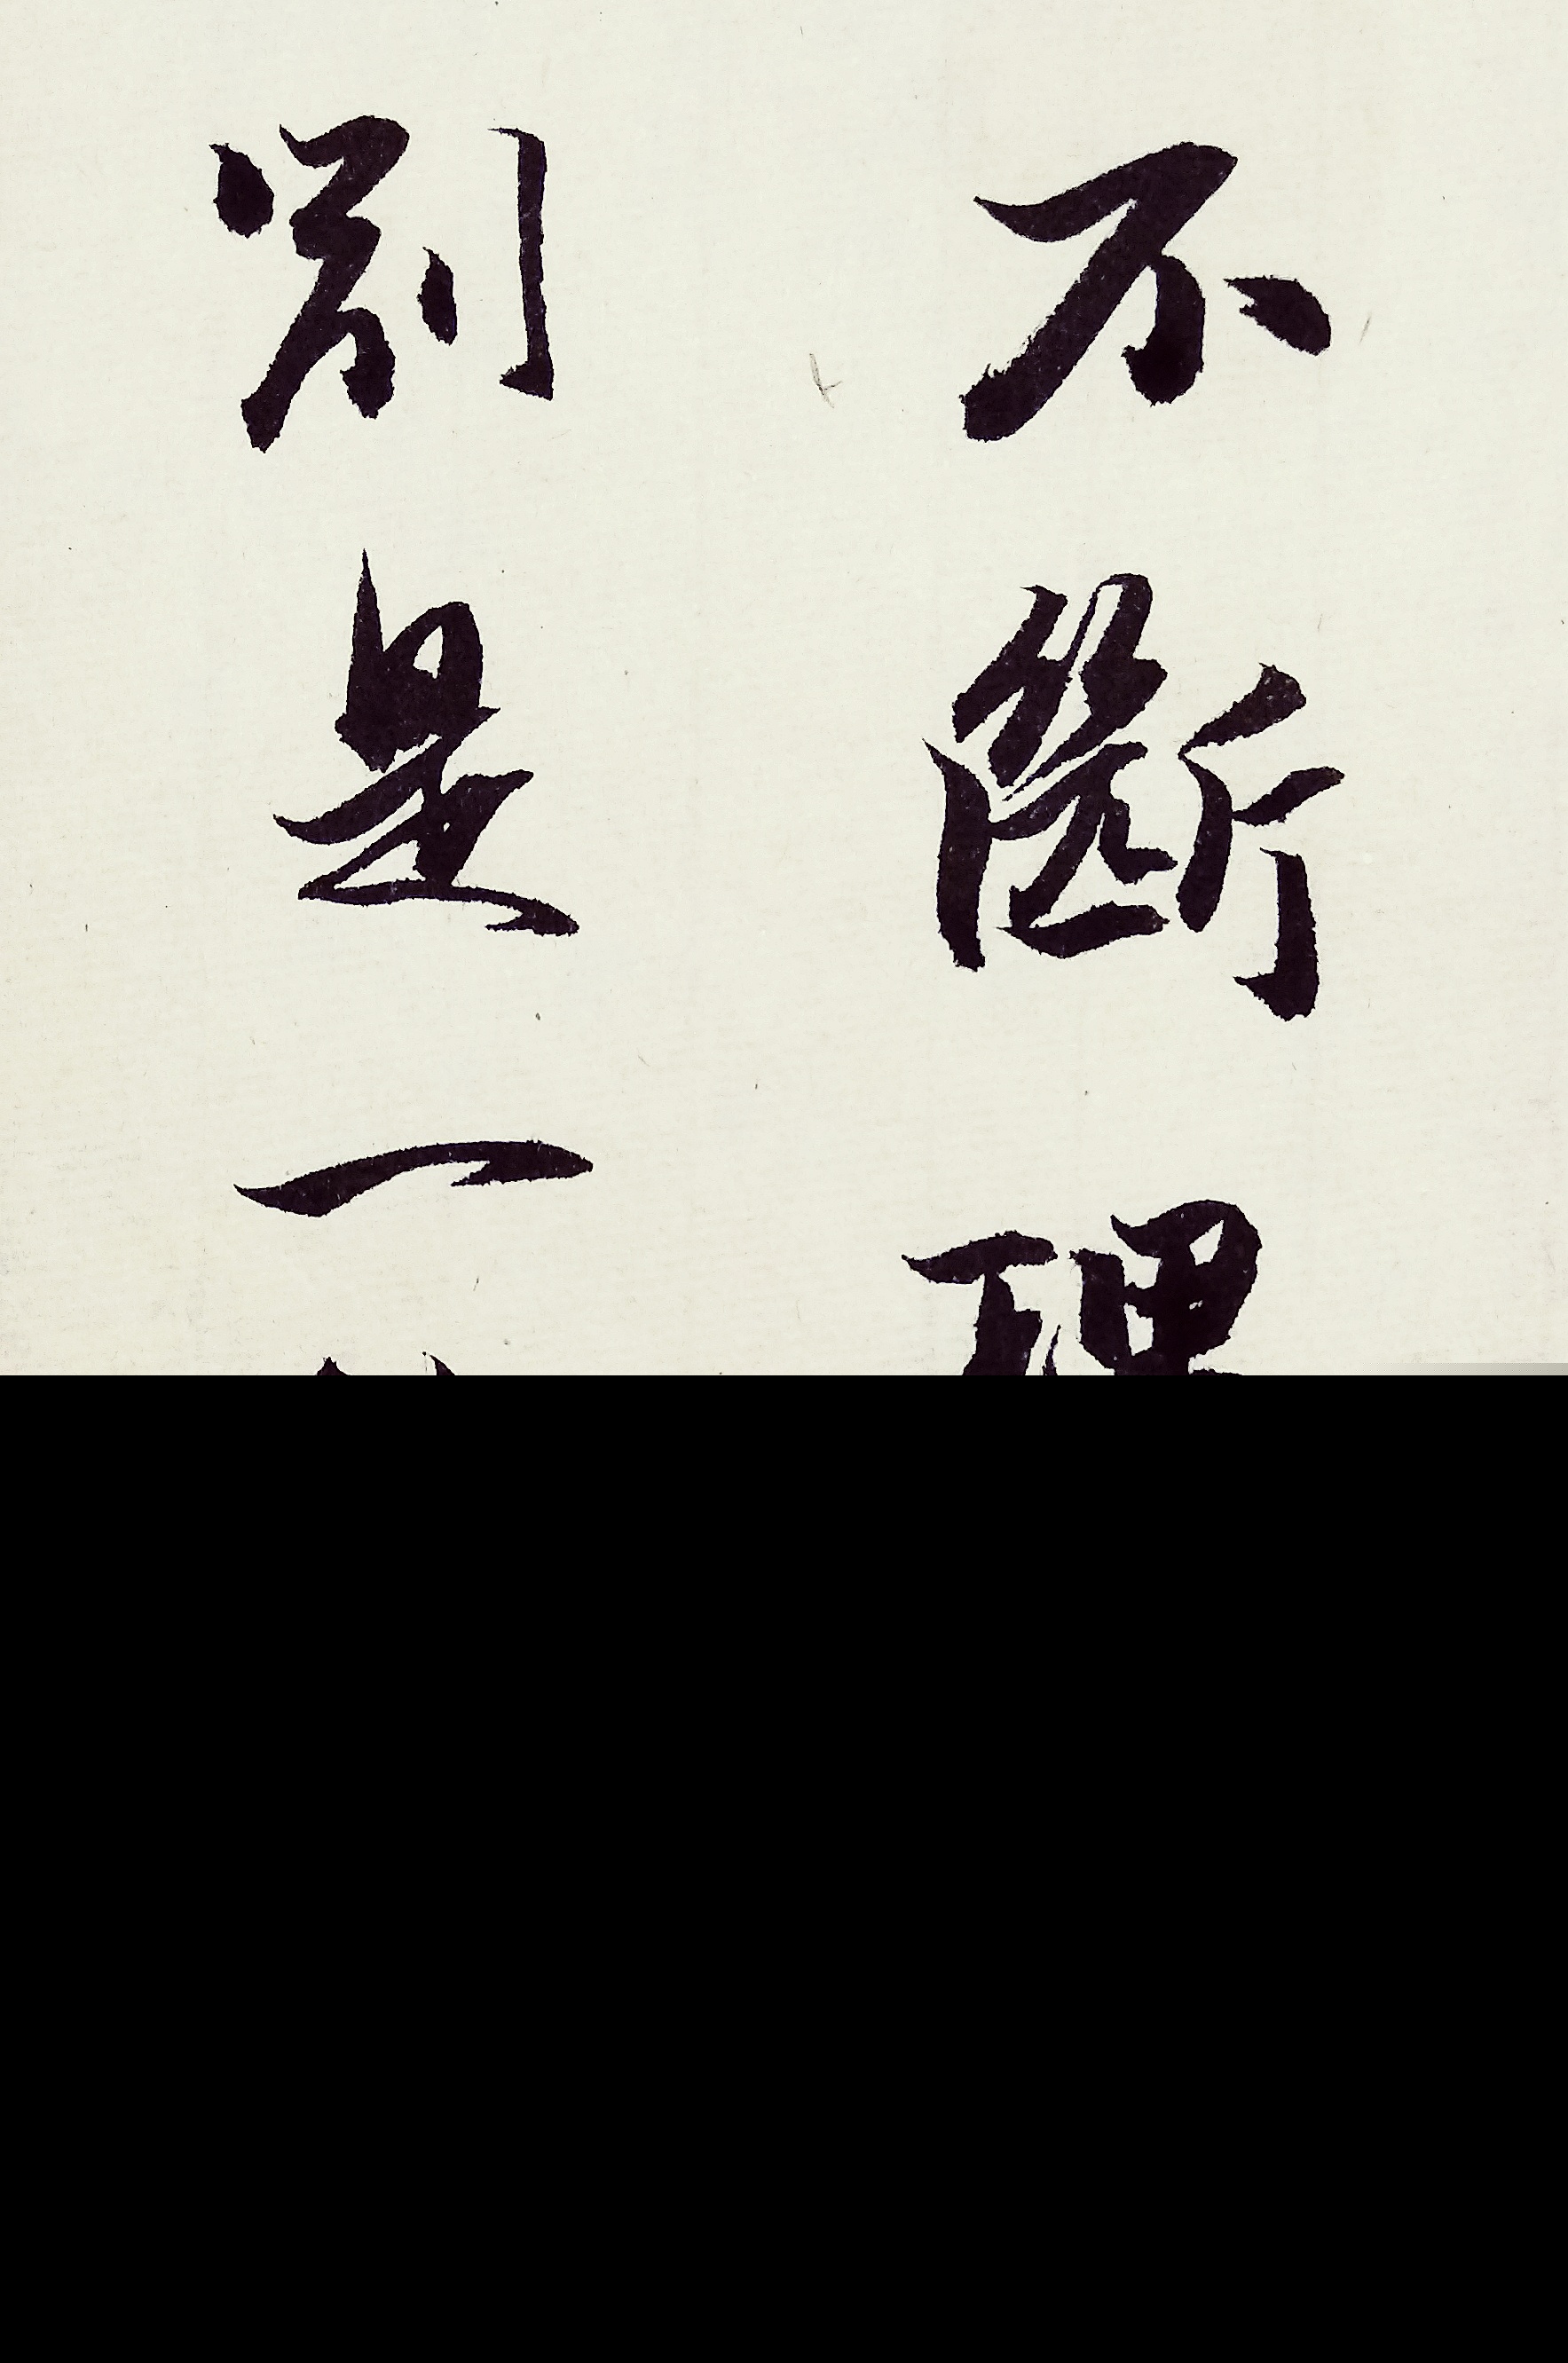 不斷理
別是一